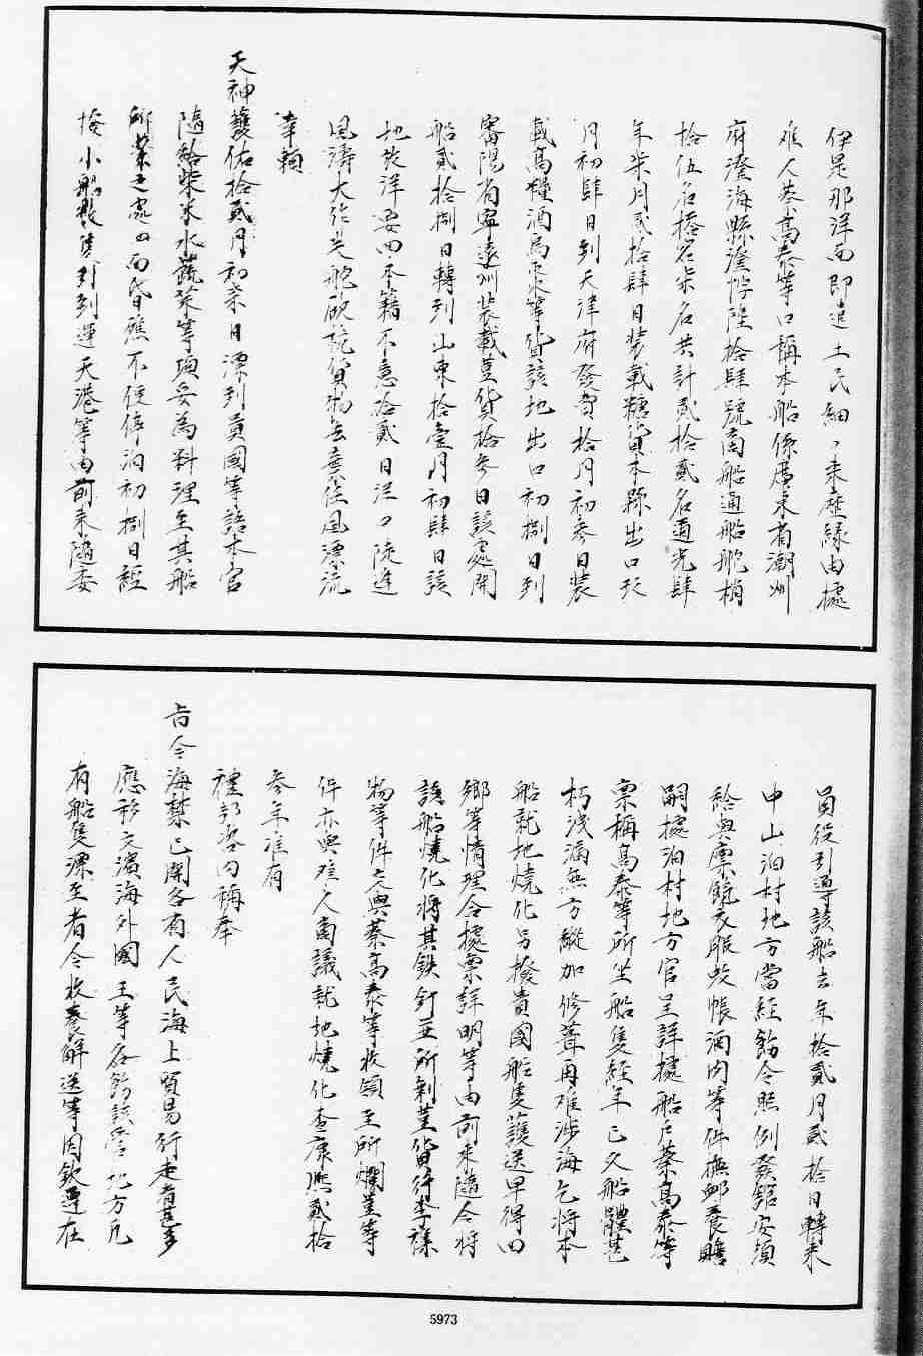 伊是那洋面即遣土民細々来歷緣由據
难人蔡高泰等口稱本船係廣東省潮州
府澄海縣漢悖陞拾肆號商船通船舵梢
拾伍名搭客柒名共計貳拾貳名道光肆
年柒月貳拾肆日裝載糖貨本縣出口玖
月初肆日到天津府發賣拾月初叁日裝
載高糧酒烏棗等貨該地出口初捌日到
審陽省寧遠州裝載荳貨拾叁日該處開
船貳拾捌日轉到山東拾壹月初肆日該
地放洋要回本籍不意拾貳日洋中陡逢
風濤大作失舵砍桅貨物丟棄任風漂流
幸賴
天神護佑拾貳月初柒日漂到貴國等語本官
隨給柴米水蔬菜等項妥為料理至其船
所繫之處四面昏礁不便停泊初捌日經
撥小船數隻引到運天港等由前来隨委
員役引導該船去年拾貳月貳拾日轉来
中山泊村地方當經飭令照例發館安頓
給與廪餼衣服蚊帳酒肉等件撫卹養贍
嗣據泊村地方官呈詳據船戶蔡高泰等
禀稱高泰等所坐船隻經年已久船體甚
朽洩漏無方縱加修葺再难涉海乞將本
船就地燒化另撥貴國船隻護送早得回
鄉等情理合據禀詳明等由前来隨令將
該船燒化將其鉄釘並所剩荳貨行李雜
物等件交與蔡高泰等收領至所爛荳等
件亦與难人商議就地燒化查康熙貳拾
叁年准有
禮部咨内稱奉
旨令海禁已開各省人民海上貿易行走者甚多
應移文濱海外國王等各飭該管地方凡
有船隻漂至者令收養解送等因欽遵在
5973